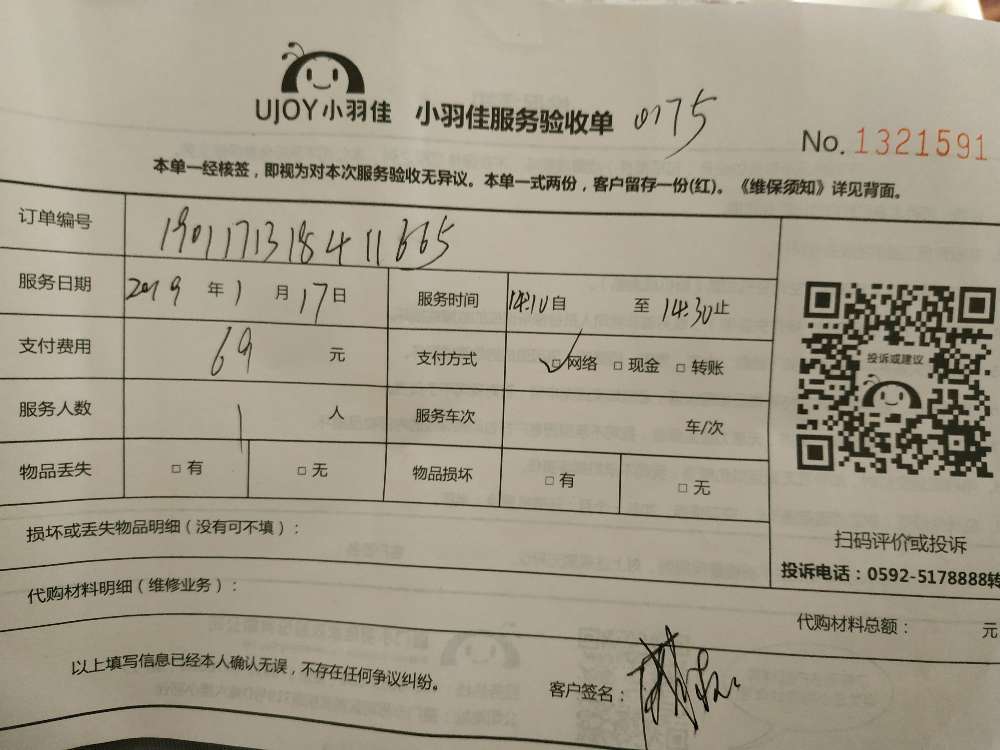 UJOY小羽佳 小羽佳服务验收单 0175
No. 1321591
本单一经核签，即视为对本次服务验收无异议。本单一式两份，客户留存一份(红)。《维保须知》详见背面。
订单编号 190117131841 1665
服务日期 2019 年 1 月 17 日 服务时间 14:10 自 至 14:30 止
支付费用 69 元 支付方式 ☑ 网络 □ 现金 □ 转账
服务人数 1 人 服务车次 车/次
物品丢失 □ 有 □ 无 物品损坏 □ 有 □ 无
投诉或建议
扫码评价或投诉
投诉电话：0592-5178888转
损坏或丢失物品明细（没有可不填）：
代购材料明细（维修业务）：
代购材料总额： 元
以上填写信息已经本人确认无误，不存在任何争议纠纷。
客户签名：